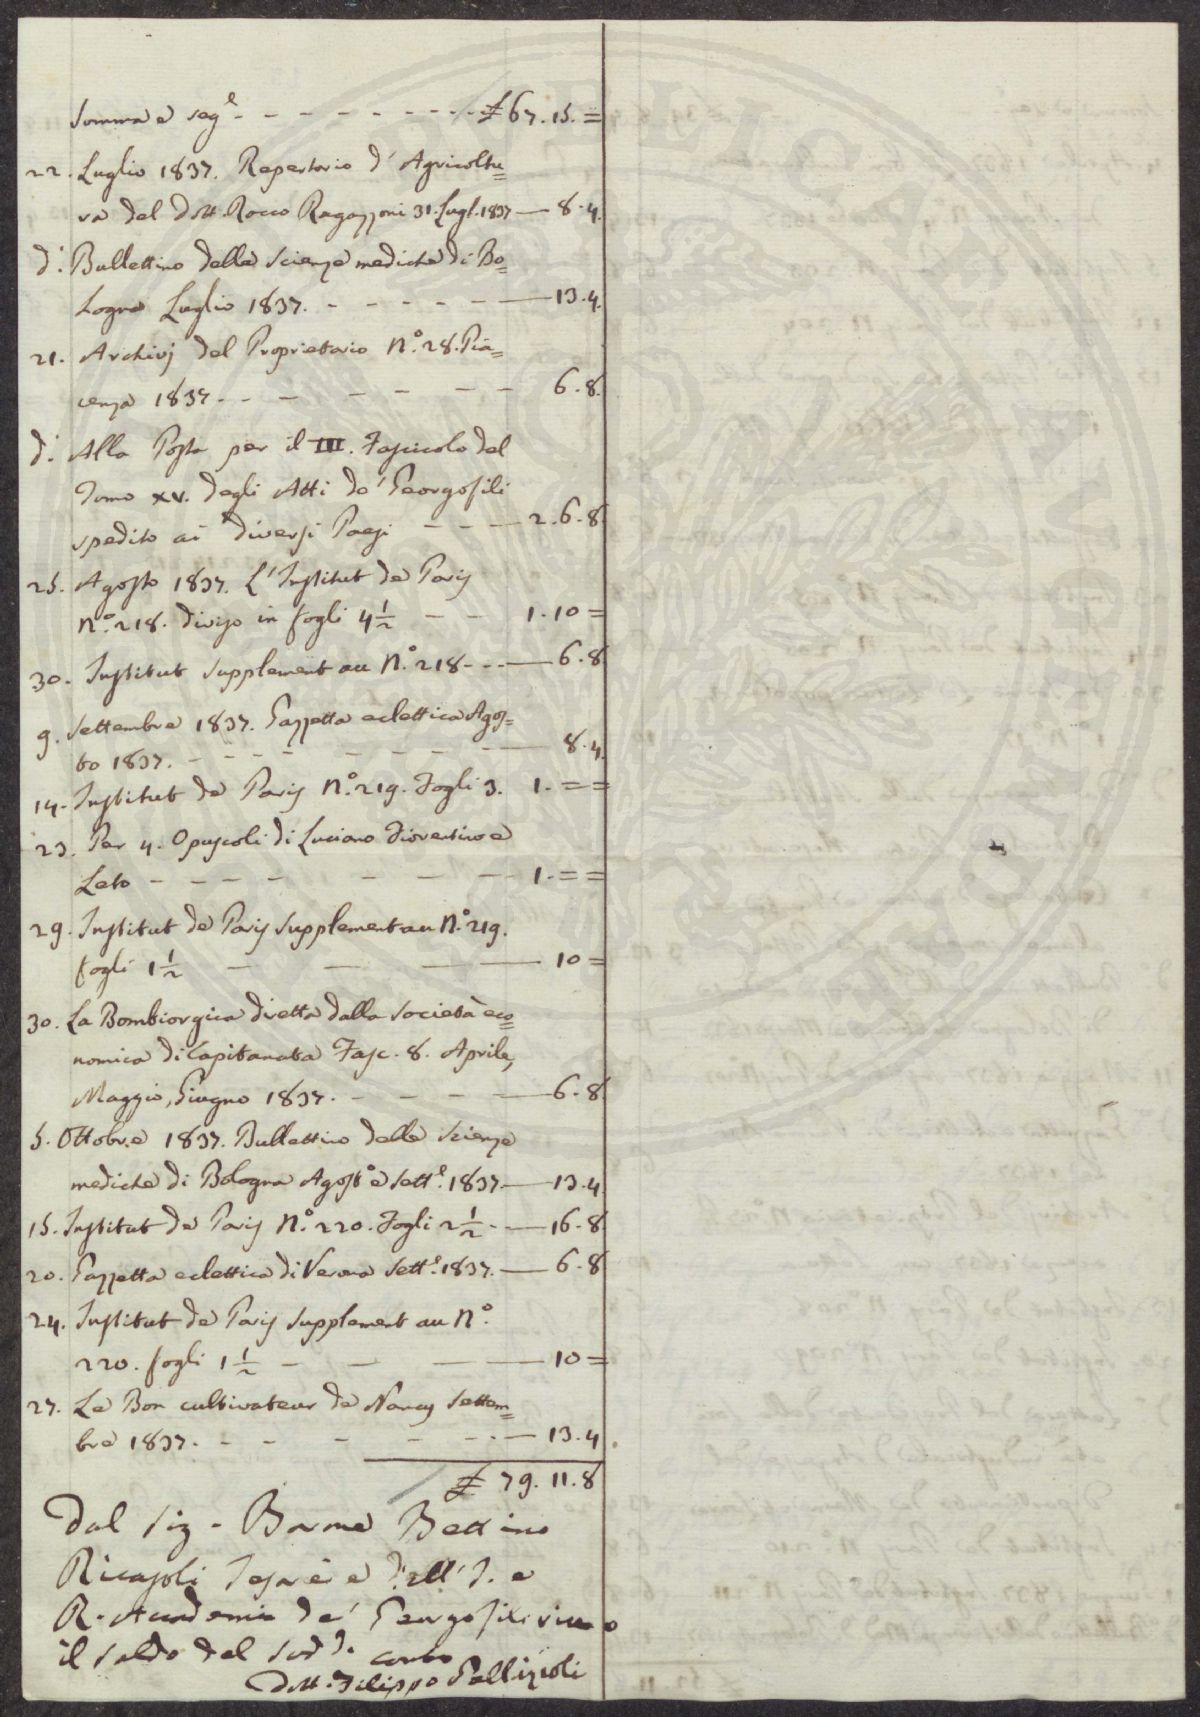 Somma e segᵉ - - - - - - - - £ 67.15.=
22. Luglio 1837. Repertorio d'Agricoltu=
ra del Dott. Rocco Ragazzoni 31. Lugl. 1837 — 8.4.
d: Bullettino delle Scienze mediche di Bo=
logna Luglio 1837. - - - - - — 13.4.
21. Archivj del Proprietario N.° 28. Pia=
cenza 1837 - - - - - - - 6.8.
d: Alla Posta per il III. Fascicolo del
Tomo XV. degli Atti de' Georgofili
spedito ai diversi Paesi - - - 2.6.8.
25. Agosto 1837. L'Institut de Paris
N.° 218. diviso in fogli 4½ - - 1.10=
30. Institut Supplement au N.° 218 - - — 6.8.
9. Settembre 1837. Gazzetta eclettica Agos=
to 1837. - - - - - - - — 8.4.
14. Institut de Paris N.° 219. Fogli 3. 1.==
23. Per 4. Opuscoli di Luciano Fiorentino e
Leto - - - - - - - 1.==
29. Institut de Paris Supplement au N.° 219.
fogli 1½ - - - — 10=
30. La Bombiorgica diretta dalla Società eco=
nomica di Capitanata Fasc. 8. Aprile,
Maggio, Giugno 1837. - - - - — 6.8.
5. Ottobre 1837. Bullettino delle Scienze
mediche di Bologna Agost.° e Settᵉ. 1837 — 13.4.
15. Institut de Paris N.° 220. Fogli 2½ - — 16.8.
20. Gazzetta eclettica di Verona Settᵉ. 1837. — 6.8.
24. Institut de Paris Supplement au N.°
220. fogli 1½ - - — 10=
27. Le Bon cultivateur de Nancy Settem=
bre 1837. - - - - - — 13.4
£ 79.11.8
Dal Sig. Barone Bettino
Ricasoli dell' I. e
R. Accademia de' Georgofili
il saldo del sud.° conto
Dott. Filippo Gallizioli